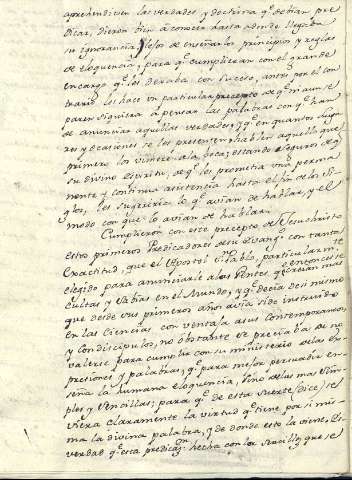 aprehendiesen las verdades, y doctrina qe. debian pre
dicar, dieron bien â conocer hasta adonde llegaba
su ignorancia, y lejos de enseñarlos principios y reglas
de eloquencia, para qe. cumplieran con el grande
encargo qe. les dexaba con suceso, antes por el con
trario, les hace un particular precepto de qe. ni aun se
paren siquiera â pensar las palabras con qe. han
de anunciar aquellas verdades, y qe. en quantos luga
res y ocasiones se les presenten, hablen aquello que
primero les viniere â la boca; estando seguros de qe.
su divino espiritu, de qe. les prometia una perma
nente y continua asistencia hasta el fin de los si
glos, les sugeriria lo qe. avian de hablar, y el
modo con que lo avian de hablar.
Cumplieron con este precepto de Jesuchristo
estos primeros Predicadores de su Evango. con tanta
exactitud, que el Apostol Sn. Pablo, particularmte.
elegido para anunciarle a las Gentes qe. entonces se creian mas
cultas y sabias en el Mundo, y qe. decia de si mismo
que desde sus primeros años avia sido instruido
en las Ciencias con ventaja a sus Contemporaneos,
y condiscipulos, no obstante se preciaba de no
valerse para cumplir con su ministerio de las ex
presiones y palabras, qe. para mejor persuadir en
seña la humana eloquencia, sino de las mas sim
ples y sencillas; para qe. de esta suerte (dice) se
viera claramente la virtud qe. tiene por si mis
ma la divina palabra, y de donde esto la viene. Es
verdad qe. esta predicacn. hecha con los sencillez que se